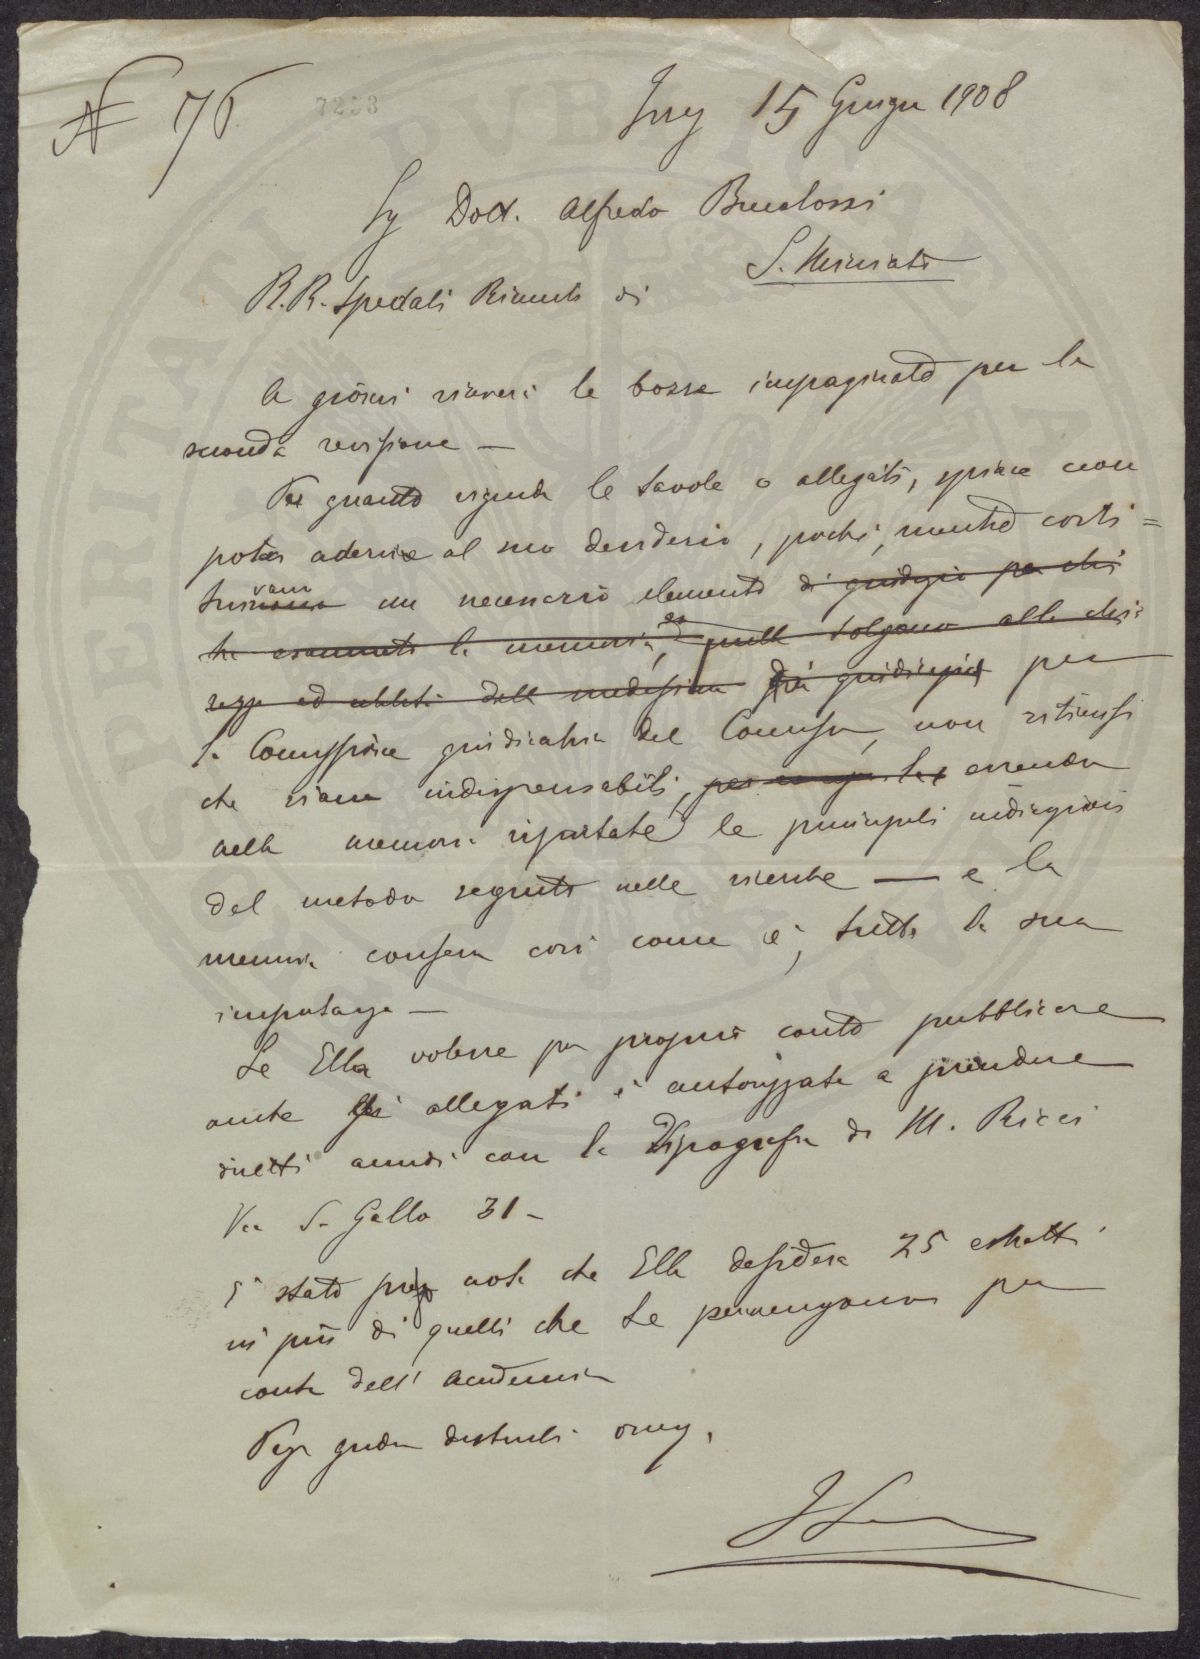 N 76 7253 15 Giugno 1908
Sg Dott. Alfredo Bucalossi
S. Miniato
R.R. Spedali Riuniti di
A giorni riceverà le bozze impaginate per la
seconda revisione —
Per quanto riguarda le tavole o allegati, spiace non
poter aderire al suo desiderio, poiché, mentre costi=
tuivano un necessario elemento di giudizio per chi
ha esaminato la memoria, quelle tolgono alla chia
rezza ed utilità della medesima già giudicata per
la Commissione giudicatrice del Concorso, non ritiensi
che siano indispensabili, essendo
nella memoria riportate le principali indicazioni
del metodo seguito nelle ricerche — e la
memoria conserva così come è, tutta la sua
importanza —
Se Ella volesse per proprio conto pubblicare
anche gli allegati è autorizzato a prendere
diretti accordi con la Tipografia di M. Ricci
Via S. Gallo 31 —
E' stato preso nota che Ella desidera 25 estratti
in più di quelli che Le pervengono per
conto dell' Accademia
Pega gradire distinti oseq,